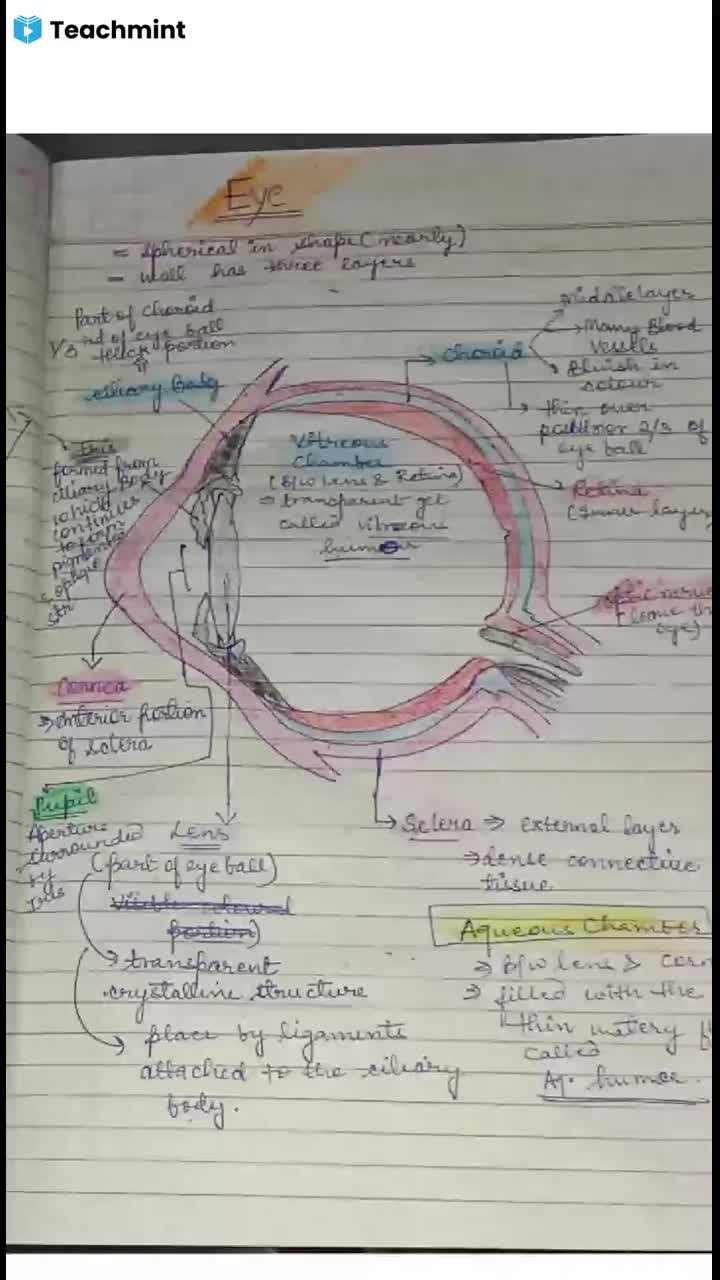 Teachmint
Eye
= Spherical in shape (nearly)
– wall has three layers
Part of Choroid
1/3 rd of eye ball
thick portion
ciliary Body
Choroid
Middle layer
→ Many Blood
vessels
Bluish in
colour
→ thin over
eye ball
Iris
formed from
ciliary Body
which
continues
to form
Vitreous
Chamber
(B/w Lens & Retina)
⇒ transparent gel
called vitreous
humor
Retina
(Inner layer
optic nerve
eye)
Cornea
⇒ Anterior portion
of sclera
Pupil
Aperture
surrounded
by
Iris
Lens
(part of eye ball)
→ transparent
crystalline structure
→ place by ligaments
attached to the ciliary
body.
→ Sclera ⇒ external layer
⇒ dense connective
tissue
Aqueous Chamber
⇒ B/w lens & corn
⇒ filled with the
thin watery f
called
Aq. humor.